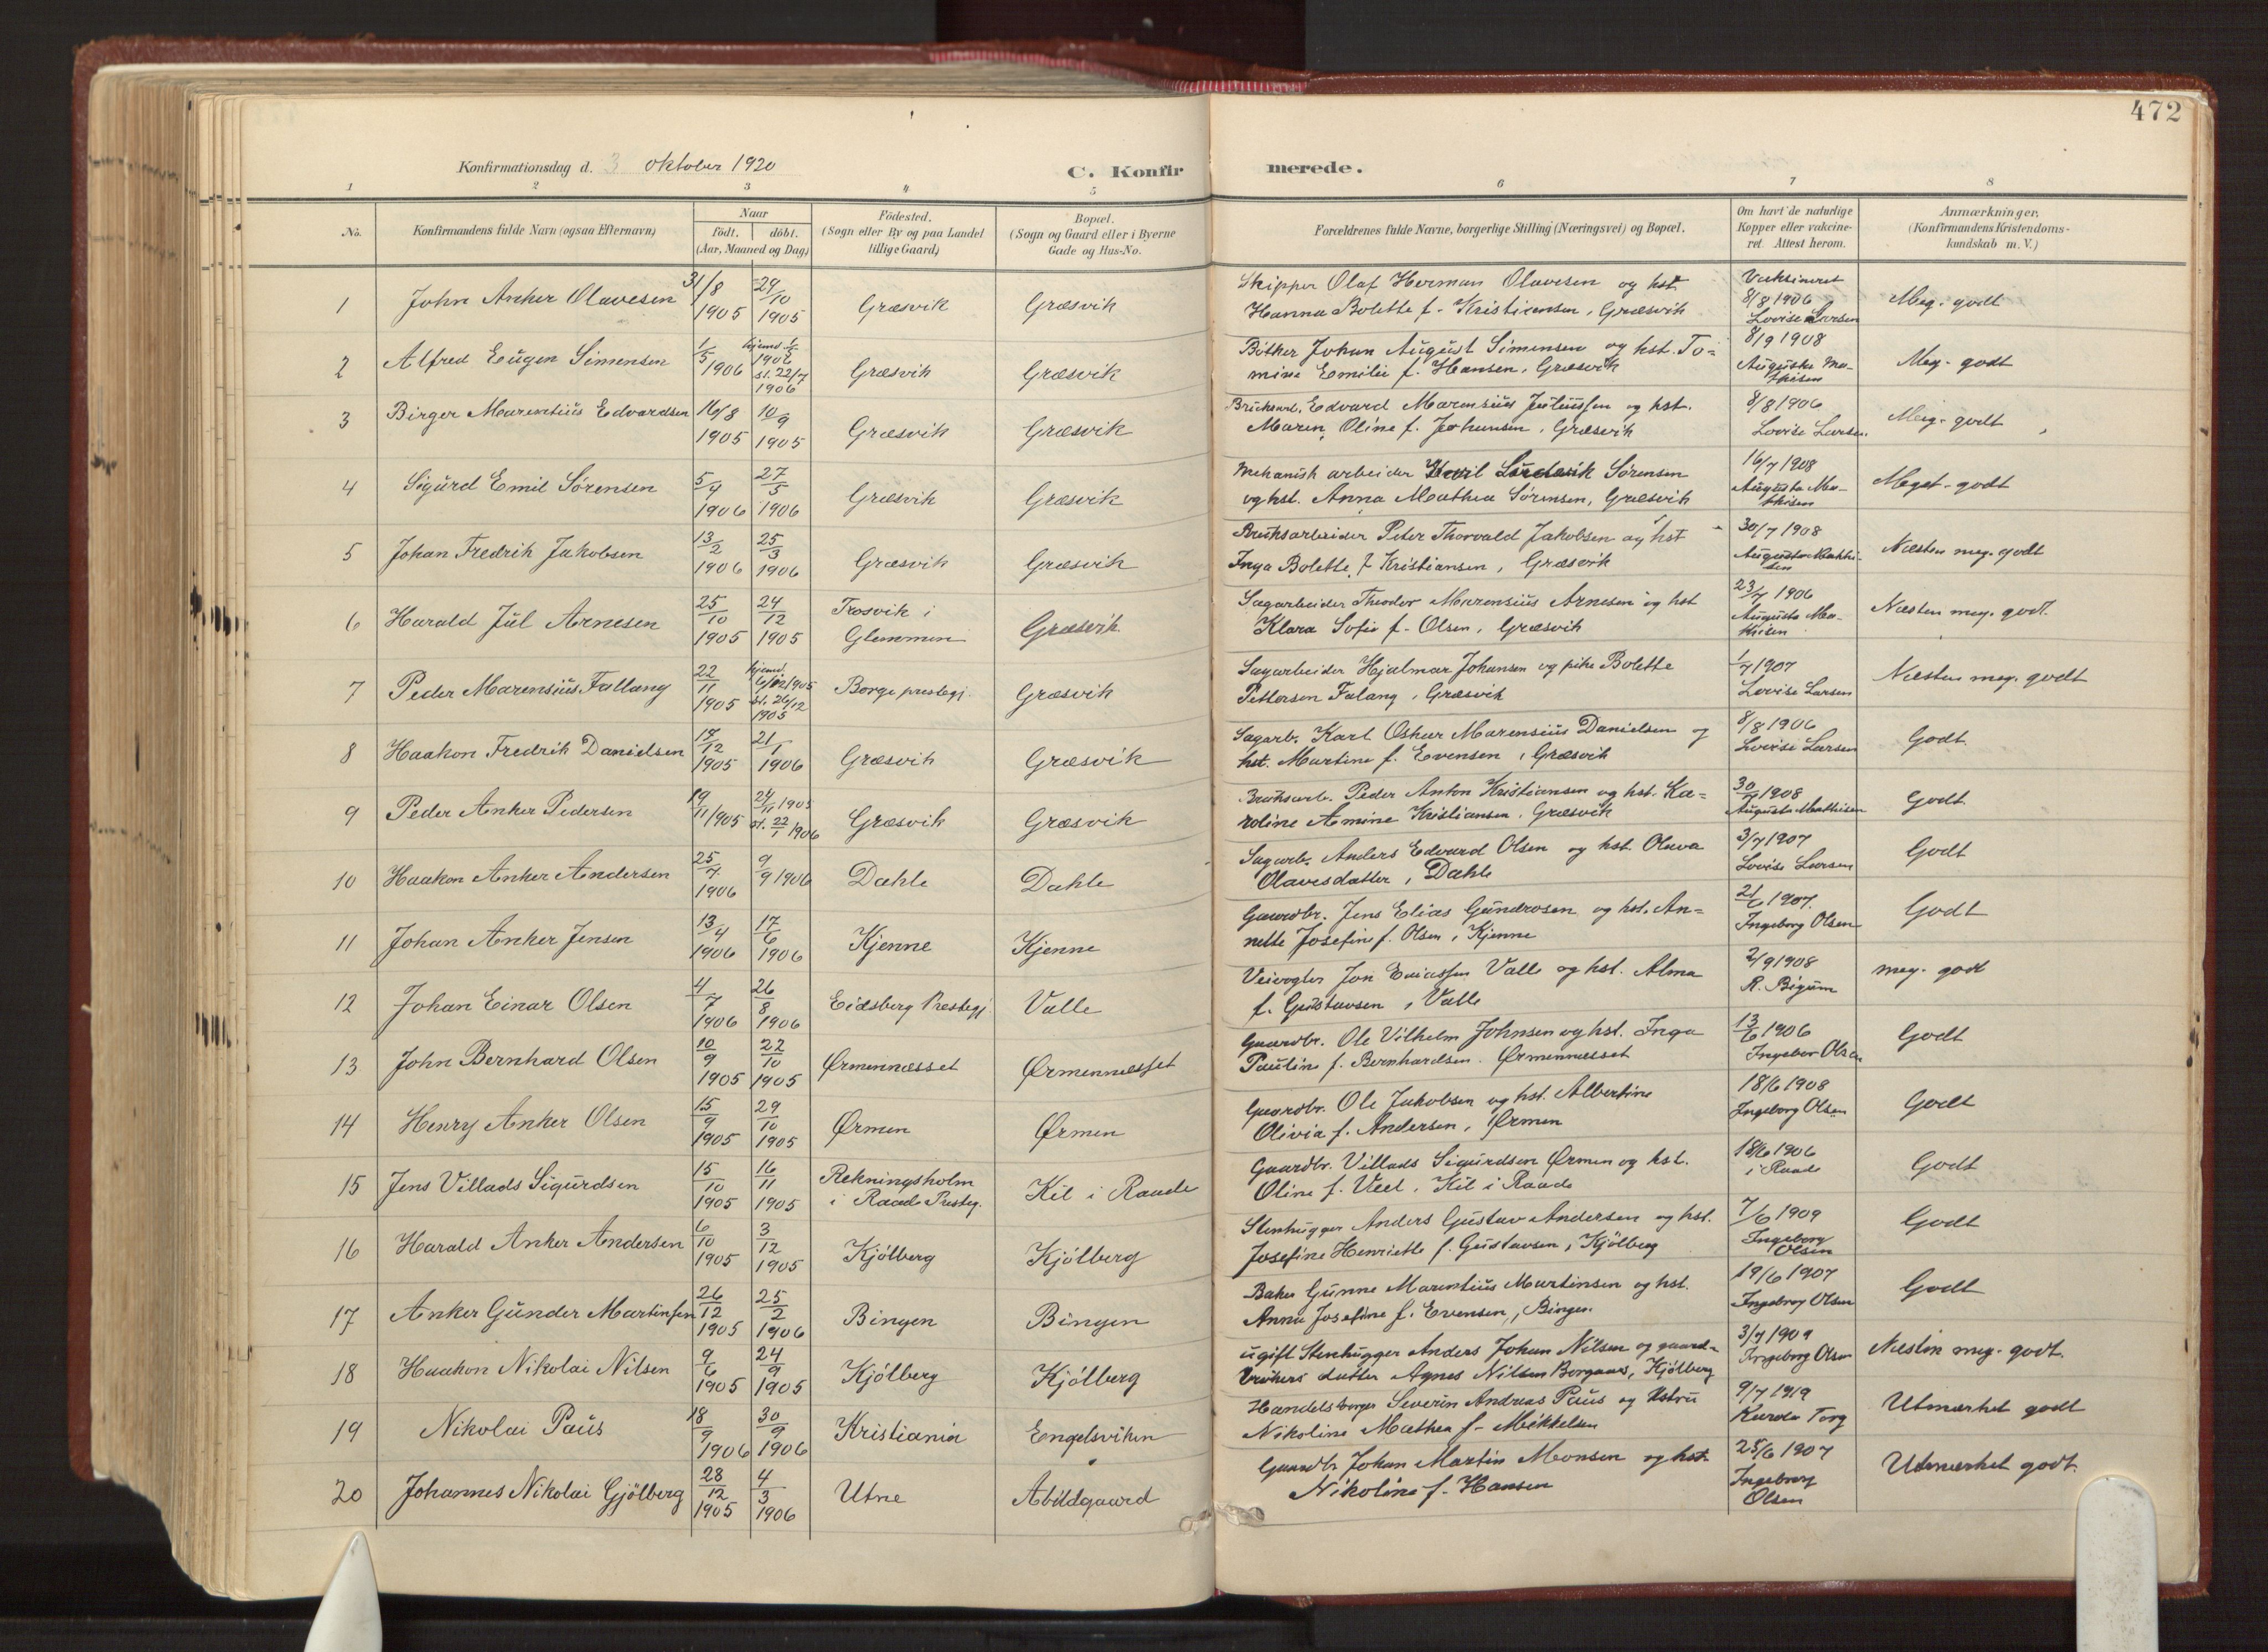 472
Konfirmationsdag d. 3 oktober 1920
C. Konfirmerede.
1 2 3 4 5 6 7 8
No.
Konfirmandens fulde Navn (ogsaa Efternavn)
Naar
födt. döbt.
(Aar, Maaned og Dag)
Födested.
(Sogn eller By og paa Landet
tillige Gaard)
Bopæl.
(Sogn og Gaard eller i Byerne
Gade og Hus-No.
Forældrenes fulde Navne, borgerlige Stilling (Næringsvei) og Bopæl.
Om havt de naturlige
Kopper eller vakcine-
ret. Attest herom.
Anmærkninger.
(Konfirmandens Kristendoms-
kundskab m. V.)
1 John Anker Olavesen 31/8 1905 29/10 1905 Græsvik Græsvik
Skipper Olaf Herman Olavesen og hst
Hanna Bolette f. Kristiansen, Græsvik
Vaksineret
8/8 1906
Lovise Larsen
Meg. godt
2 Alfred Eugen Simensen 1/5 1906 hjemd. 1/5 1906 st. 22/7 1906 Græsvik Græsvik
Bötker Johan August Simensen og hst. To-
mine Emilie f. Hansen, Græsvik
8/9 1908
Augusta Ma-
thisen
Meg. godt
3 Birger Marentius Edvardsen 16/8 1905 10/9 1905 Græsvik Græsvik
Bruksarb. Edvard Marensius Juliussen og hst.
Maren Oline f. Johansen, Græsvik
8/8 1906
Lovise Larsen.
Meg. godt
4 Sigurd Emil Sörensen 5/4 1906 27/5 1906 Græsvik Græsvik
Mekanisk arbeider Sörensen
og hst. Anna Mathea Sörensen, Græsvik
16/7 1908
Augusta Ma-
thisen
Meget godt
5 Johan Fredrik Jakobsen 13/2 1906 25/3 1906 Græsvik Græsvik
Bruksarbeider Peter Thorvald Jakobsen og hst
Inga Bolette f. Kristiansen, Græsvik
30/7 1908
Augusta Mathi-
sen
Næsten meg. godt
6 Harald Jul Arnesen 25/10 1905 24/12 1905 Trosvik i
Glemmen Græsvik
Sagarbeider Theodor Marensius Arnesen og hst
Klara Sofie f. Olsen, Græsvik
23/7 1906
Augusta Ma-
thisen
Næsten meg. godt.
7 Peder Marensius Fallang 22/11 1905 hjemd. 6/12 1905 st. 26/12 1905 Borge prestegj. Græsvik
Sagarbeider Hjalmar Johansen og pike Bolette
Pettersen Falang, Græsvik
1/7 1907
Lovise Larsen
Næsten meg. godt
8 Haakon Fredrik Danielsen 17/12 1905 21/1 1906 Græsvik Græsvik
Sagarb. Karl Oskar Marensius Danielsen og
hst. Martine f. Evensen, Græsvik
8/8 1906
Lovise Larsen
Godt.
9 Peder Anker Pedersen 19/11 1905 24/11 1905 st. 22/1 1906 Græsvik Græsvik
Bruksarb. Peder Anton Kristiansen og hst. Ka-
roline Amine Kristiansen, Græsvik
30/7 1908
Augusta Mathisen
Godt.
10 Haakon Anker Andersen 25/7 1906 9/9 1906 Dæhle Dæhle
Sagarb. Anders Edvard Olsen og hst. Olava
Olavesdatter, Dæhle
3/7 1907
Lovise Larsen
Godt
11 Johan Anker Jensen 13/4 1906 17/6 1906 Kjenne Kjenne
Gaardbr. Jens Elias Gundrosen og hst. An-
nette Josefine f. Olsen, Kjenne
21/6 1907.
Ingeborg Olsen
Godt
12 Johan Einar Olsen 4/7 1906 26/8 1906 Eidsberg Prestegj. Valle
Veivogter Jon Valle og hst. Alma
f. Gustavsen, Valle
2/9 1908
R. Bigum
meg. godt
13 John Bernhard Olsen 10/9 1905 22/10 1905 Ørmennæsset Ørmennæsset
Gaardbr. Ole Vilhelm Johnsen og hst. Inga
Pauline f. Bernhardsen. Ørmennæsset
13/6 1906
Ingebor Olsen
Godt
14 Henry Anker Olsen 15/9 1905 29/10 1905 Ørmen Ørmen
Gaardbr. Ole Jakobsen og hst. Albertine
Olivia f. Andersen, Ørmen
18/6 1908
Ingeborg Olsen
Godt
15 Jens Villads Sigurdsen 15/10 1905 16/11 1905 Rekningsholm
i Raade Presteg. Kil i Raade
Gaardbr. Villads Sigurdsen Ørmen og hst.
Oline f. Veel, Kil i Raade
18/6 1906
i Raade
Godt
16 Harald Anker Andersen 6/10 1905 3/12 1905 Kjölberg Kjölberg
Stenhugger Anders Gustav Andersen og hst.
Josefine Henriette f. Gustavsen, Kjölberg
7/6 1909
Ingeborg
Olsen
Godt
17 Anker Gunder Martinsen 26/12 1905 25/2 1906 Bingen Bingen
Baker Gunne Marentius Martinsen og hst.
Anna Josefine f. Evensen, Bingen
19/6 1907
Ingeborg Olsen
Godt
18 Haakon Nikolai Nilsen 9/6 1905 24/9 1905 Kjölberg Kjölberg
ugift Stenhugger Anders Johan Nilsen og gaard-
brukers datter Agnes Nilsen Borgaas, Kjölberg
3/7 1909
Ingeborg Olsen
Næsten meg. godt.
19 Nikolai Paus 18/9 1906 30/9 1906 Kristiania Engelsviken
Handelsborger Severin Andreas Paus og Hstru
Nikoline Mathea f. Mikkelsen
9/7 1919
Karda Torg
Utmærket godt
20 Johannes Nikolai Gjölberg 28/12 1905 4/3 1906 Utne Abildgaard
Gaardbr Johan Martin Monsen og hst.
Nikoline f. Hansen
25/6 1907
Ingeborg
Olsen
Utmærket godt.